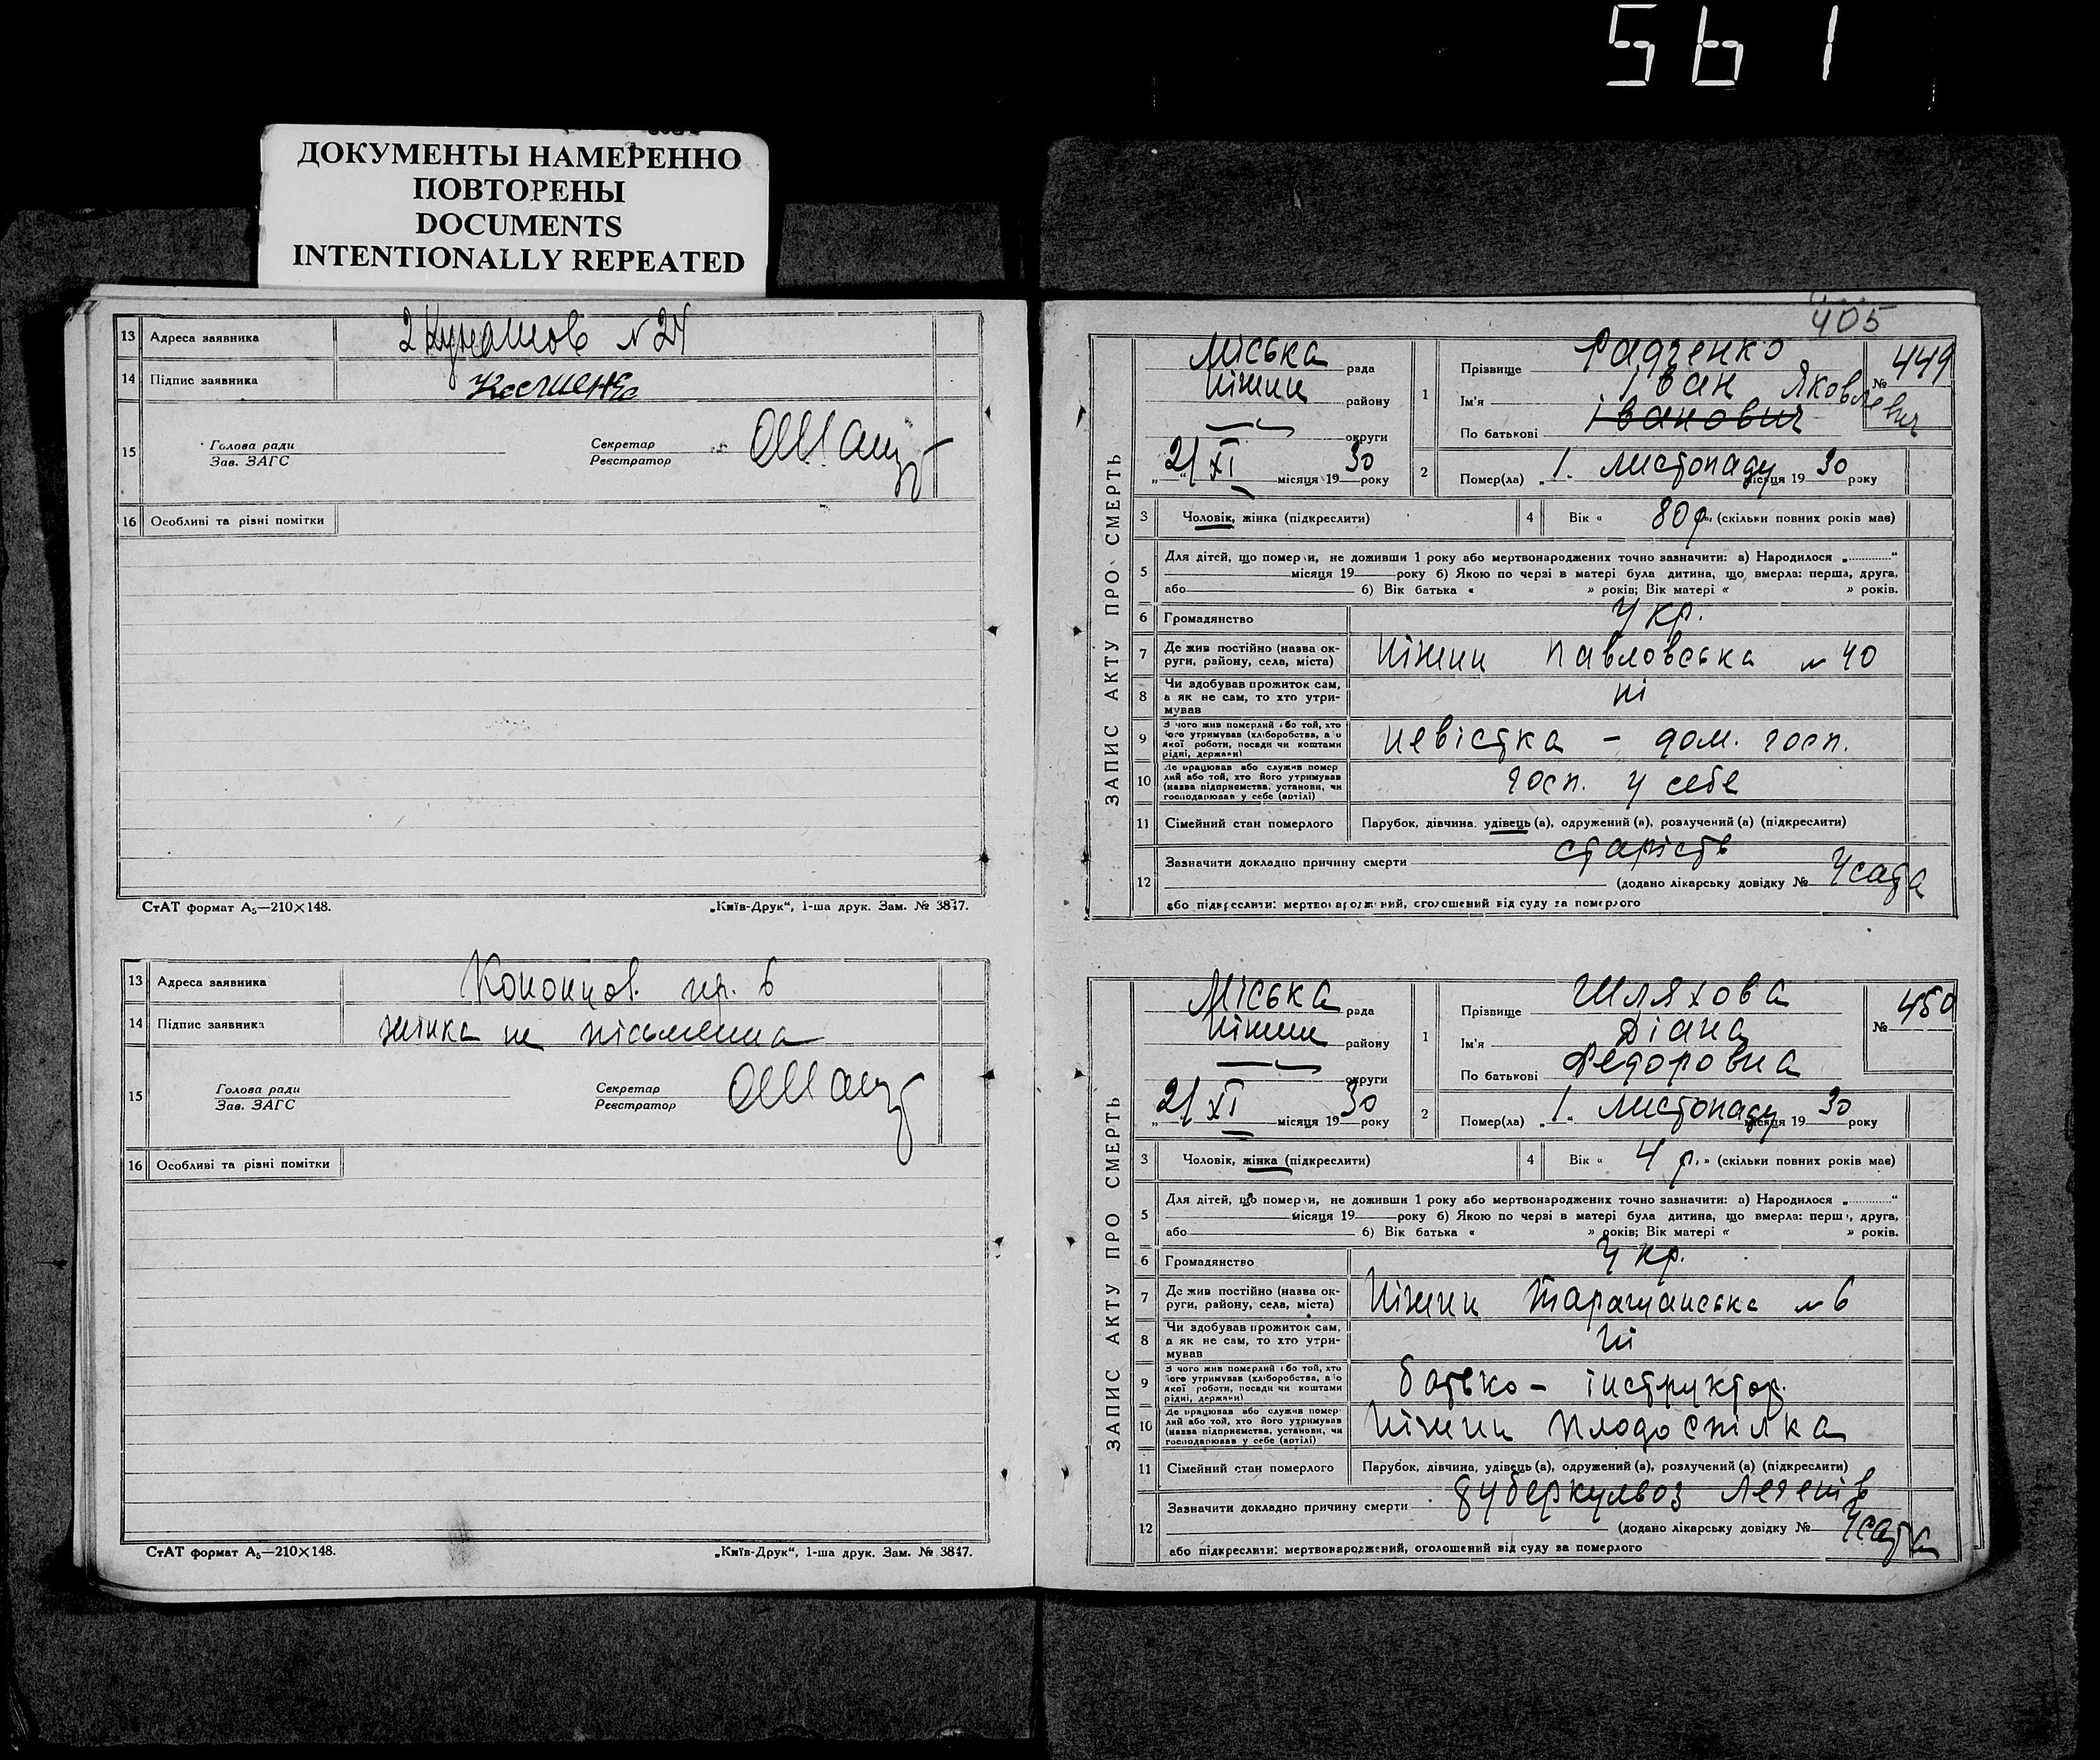 561
ДОКУМЕНТЫ НАМЕРЕННО
ПОВТОРЕНЫ
DOCUMENTS
INTENTIONALLY REPEATED
13 Адреса заявника № 24
14 Підпис заявника
15 Голова ради Секретар
Зав. ЗАГС Реєстратор
16 Особливі та різні помітки
СтАТ формат А5—210×148. „Київ-Друк“, 1-ша друк. Зам. № 3847.
13 Адреса заявника 6
14 Підпис заявника жінка не письменна
15 Голова ради Секретар
Зав. ЗАГС Реєстратор
16 Особливі та різні помітки
СтАТ формат А5—210×148. „Київ-Друк“, 1-ша друк. Зам. № 3847.
405
ЗАПИС АКТУ ПРО СМЕРТЬ
Міська рада
Ніжин району
округи
„21“ XI місяця 1930 року
1 Прізвище Радченко № 449
Ім'я Іван Яковлевич
По батькові Іванович
2 Помер(ла) „1“ листопаду місяця 1930 року
3 Чоловік, жінка (підкреслити) 4 Вік « 80 р. » (скільки повних років має)
5 Для дітей, що померли, не доживши 1 року або мертвонароджених точно зазначити: а) Народилося „............“
місяця 19 року б) Якою по черзі в матері була дитина, що вмерла: перша, друга,
або б) Вік батька « » років; Вік матері « » років.
6 Громадянство Укр.
7 Де жив постійно (назва округи, району, села, міста) Ніжин Павловська № 40
8 Чи здобував прожиток сам, а як не сам, то хто утримував ні
9 З чого жив померлий або той, хто його утримував (хліборобства, або якої роботи, посади чи коштами рідні, держави) невістка – дом. госп.
10 Де працював або служив померлий або той, хто його утримував (назва підприємства, установи, чи господарював у себе (артілі) госп. у себе
11 Сімейний стан померлого Парубок, дівчина, удівець (а), одружений (а), розлучений (а) (підкреслити)
12 Зазначити докладно причину смерти старість
(додано лікарську довідку №
або підкреслити: мертвонароджений, оголошений від суду за померлого
ЗАПИС АКТУ ПРО СМЕРТЬ
Міська рада
Ніжин району
округи
„21“ XI місяця 1930 року
1 Прізвище Шляхова № 450
Ім'я Діана
По батькові Федоровна
2 Помер(ла) „1“ листопаду місяця 1930 року
3 Чоловік, жінка (підкреслити) 4 Вік « 4 р. » (скільки повних років має)
5 Для дітей, що померли, не доживши 1 року або мертвонароджених точно зазначити: а) Народилося „............“
місяця 19 року б) Якою по черзі в матері була дитина, що вмерла: перша, друга,
або б) Вік батька « » років; Вік матері « » років.
6 Громадянство Укр.
7 Де жив постійно (назва округи, району, села, міста) Ніжин Таращанська № 6
8 Чи здобував прожиток сам, а як не сам, то хто утримував ні
9 З чого жив померлий або той, хто його утримував (хліборобства, або якої роботи, посади чи коштами рідні, держави) батько – інструктор.
10 Де працював або служив померлий або той, хто його утримував (назва підприємства, установи, чи господарював у себе (артілі) Ніжин Плодоспілка
11 Сімейний стан померлого Парубок, дівчина, удівець (а), одружений (а), розлучений (а) (підкреслити)
12 Зазначити докладно причину смерти туберкульоз легенів
(додано лікарську довідку №
або підкреслити: мертвонароджений, оголошений від суду за померлого